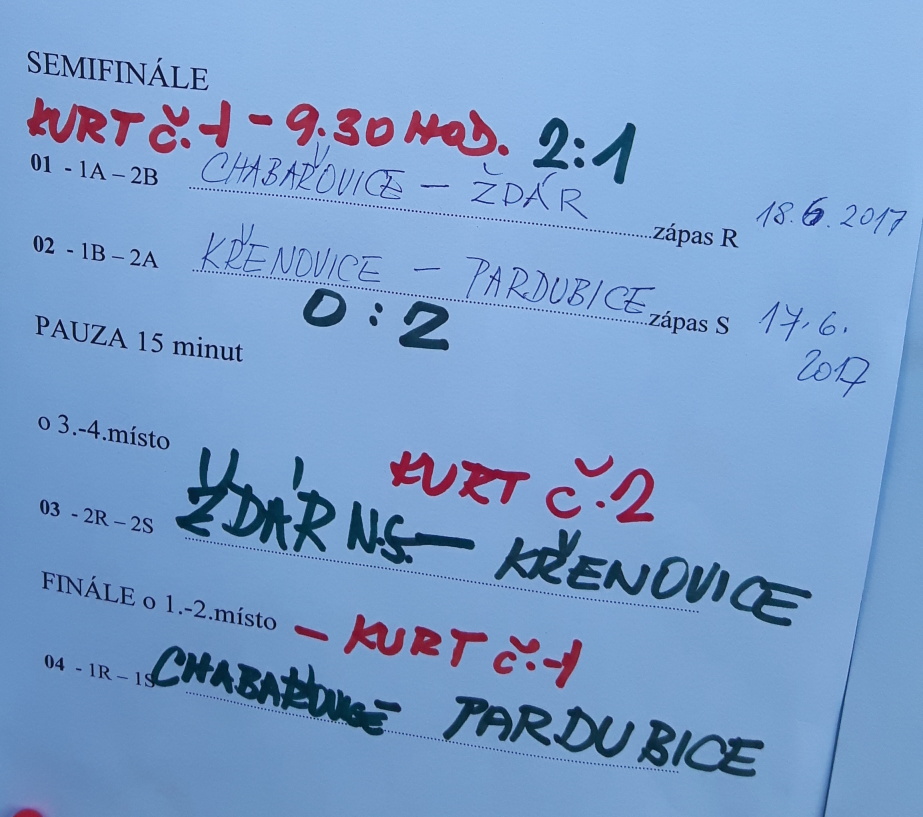 SEMIFINÁLE
KURT č.1 - 9.30 HOD. 2:1
01 - 1A – 2B CHABAŘOVICE – ŽDÁR zápas R 18.6.2017
02 - 1B – 2A KŘENOVICE – PARDUBICE zápas S 17.6.
2017
0:2
PAUZA 15 minut
o 3.-4.místo
KURT č.2
03 - 2R – 2S ŽDÁR N.S. – KŘENOVICE
FINÁLE o 1.-2.místo – KURT č.1
04 - 1R – 1S CHABAŘOVICE – PARDUBICE